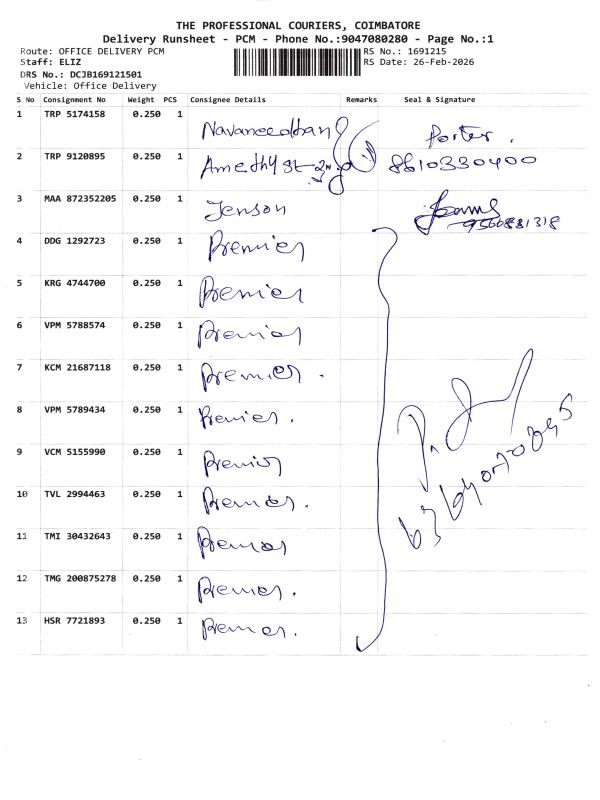 THE PROFESSIONAL COURIERS, COIMBATORE
Delivery Runsheet - PCM - Phone No.:9047080280 - Page No.:1
Route: OFFICE DELIVERY PCM RS No.: 1691215
Staff: ELIZ RS Date: 26-Feb-2026
DRS No.: DCJB169121501
Vehicle: Office Delivery
S No Consignment No Weight PCS Consignee Details Remarks Seal & Signature
1 TRP 5174158 0.250 1 Navaneedhan Porter.
2 TRP 9120895 0.250 1 Amethyst 8610330400
3 MAA 872352205 0.250 1 Jenson
9566831318
4 DDG 1292723 0.250 1 Premier
5 KRG 4744700 0.250 1 Premier
6 VPM 5788574 0.250 1 Premier
7 KCM 21687118 0.250 1 Premier.
8 VPM 5789434 0.250 1 Premier.
9 VCM 5155990 0.250 1 Premier
10 TVL 2994463 0.250 1 Premier.
11 TMI 30432643 0.250 1 Premier
12 TMG 200875278 0.250 1 Premier.
13 HSR 7721893 0.250 1 Premier.